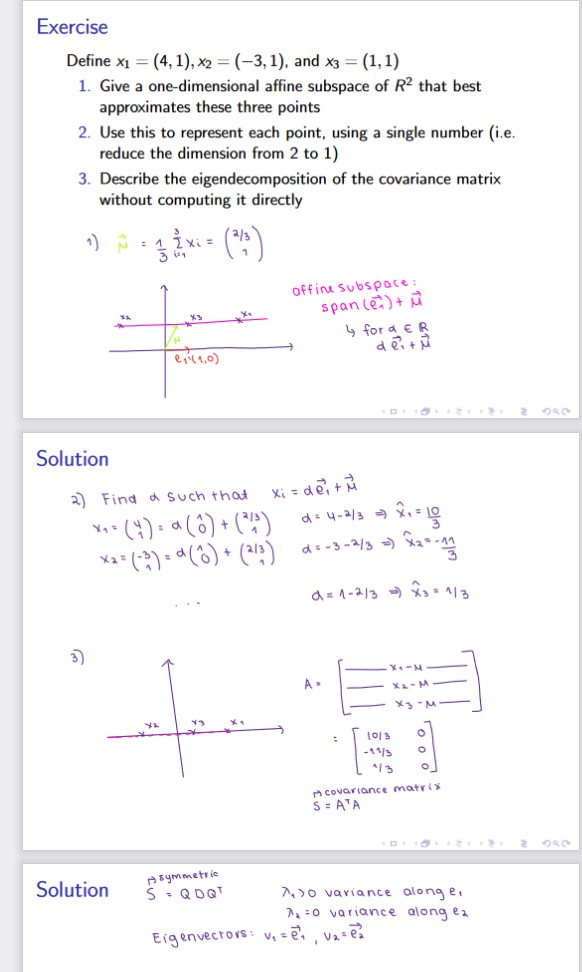 Exercise
Define x₁ = (4, 1), x₂ = (−3, 1), and x₃ = (1, 1)
1. Give a one-dimensional affine subspace of R² that best
approximates these three points
2. Use this to represent each point, using a single number (i.e.
reduce the dimension from 2 to 1)
3. Describe the eigendecomposition of the covariance matrix
without computing it directly
1) μ⃗ = 1/3 Σ³ᵢ₌₁ xᵢ = (2/3 1)
affine subspace:
span(e⃗₁) + μ⃗
↳ for α ∈ R
α e⃗₁ + μ⃗
x₂ x₃ x₁
μ
e₁=(1,0)
Solution
2) Find α such that xᵢ = αe⃗₁ + μ⃗
x₁ = (4 1) = α(1 0) + (2/3 1) α = 4-2/3 ⇒ x̂₁ = 10/3
x₂ = (-3 1) = α(1 0) + (2/3 1) α = -3-2/3 ⇒ x̂₂ = -11/3
... α = 1-2/3 ⇒ x̂₃ = 1/3
3)
x₂ x₃ x₁
A = [ x₁-μ
x₂-μ
x₃-μ ]
= [ 10/3 0
-11/3 0
1/3 0 ]
↱ covariance matrix
S = AᵀA
Solution
↱ symmetric
S = QDQᵀ λ₁>0 variance along e₁
λ₂=0 variance along e₂
Eigenvectors: v₁ = e⃗₁, v₂ = e⃗₂